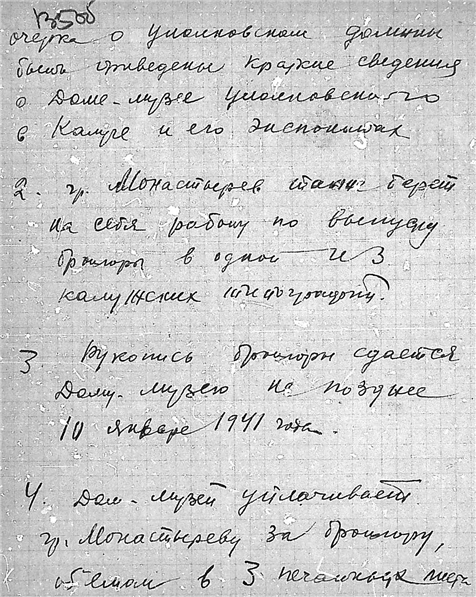 В506
очерка о Циолковском должны
быть приведены краткие сведения
о Доме-музее Циолковского
в Калуге и его экспонатах
2. гр. Монастырев также берет
на себя работу по выпуску
брошюры в одной из
калужских типографий.
3 Рукопись брошюры сдается
Дому-музею не позднее
10 января 1941 года.
4. Дом-музей уплачивает
гр. Монастыреву за брошюру,
объемом в 3 печатных листа